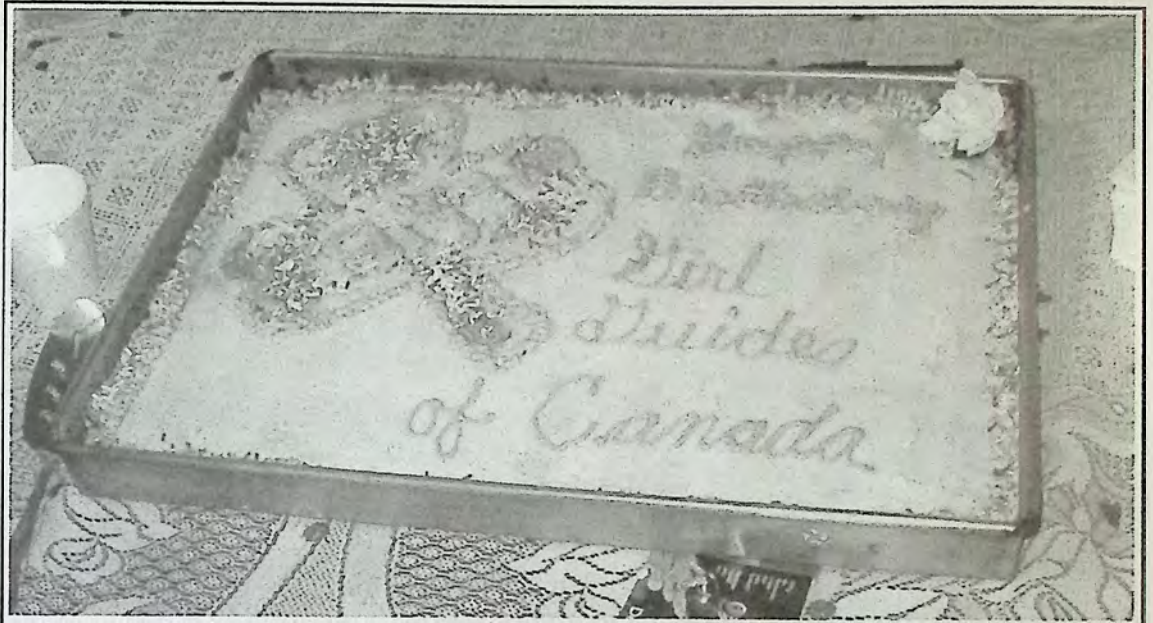 Happy
Birthday
Girl
Guides
of Canada